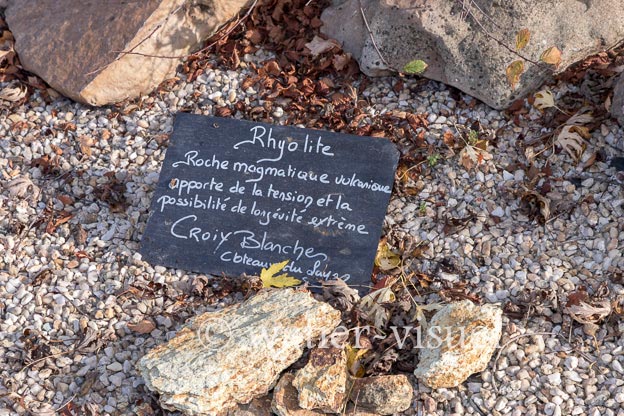 Rhyolite
Roche magmatique vulcanique
apporte de la tension et la
possibilité de longévité extrême
Croix Blanche
Coteaux du Layon
© wetter-visual